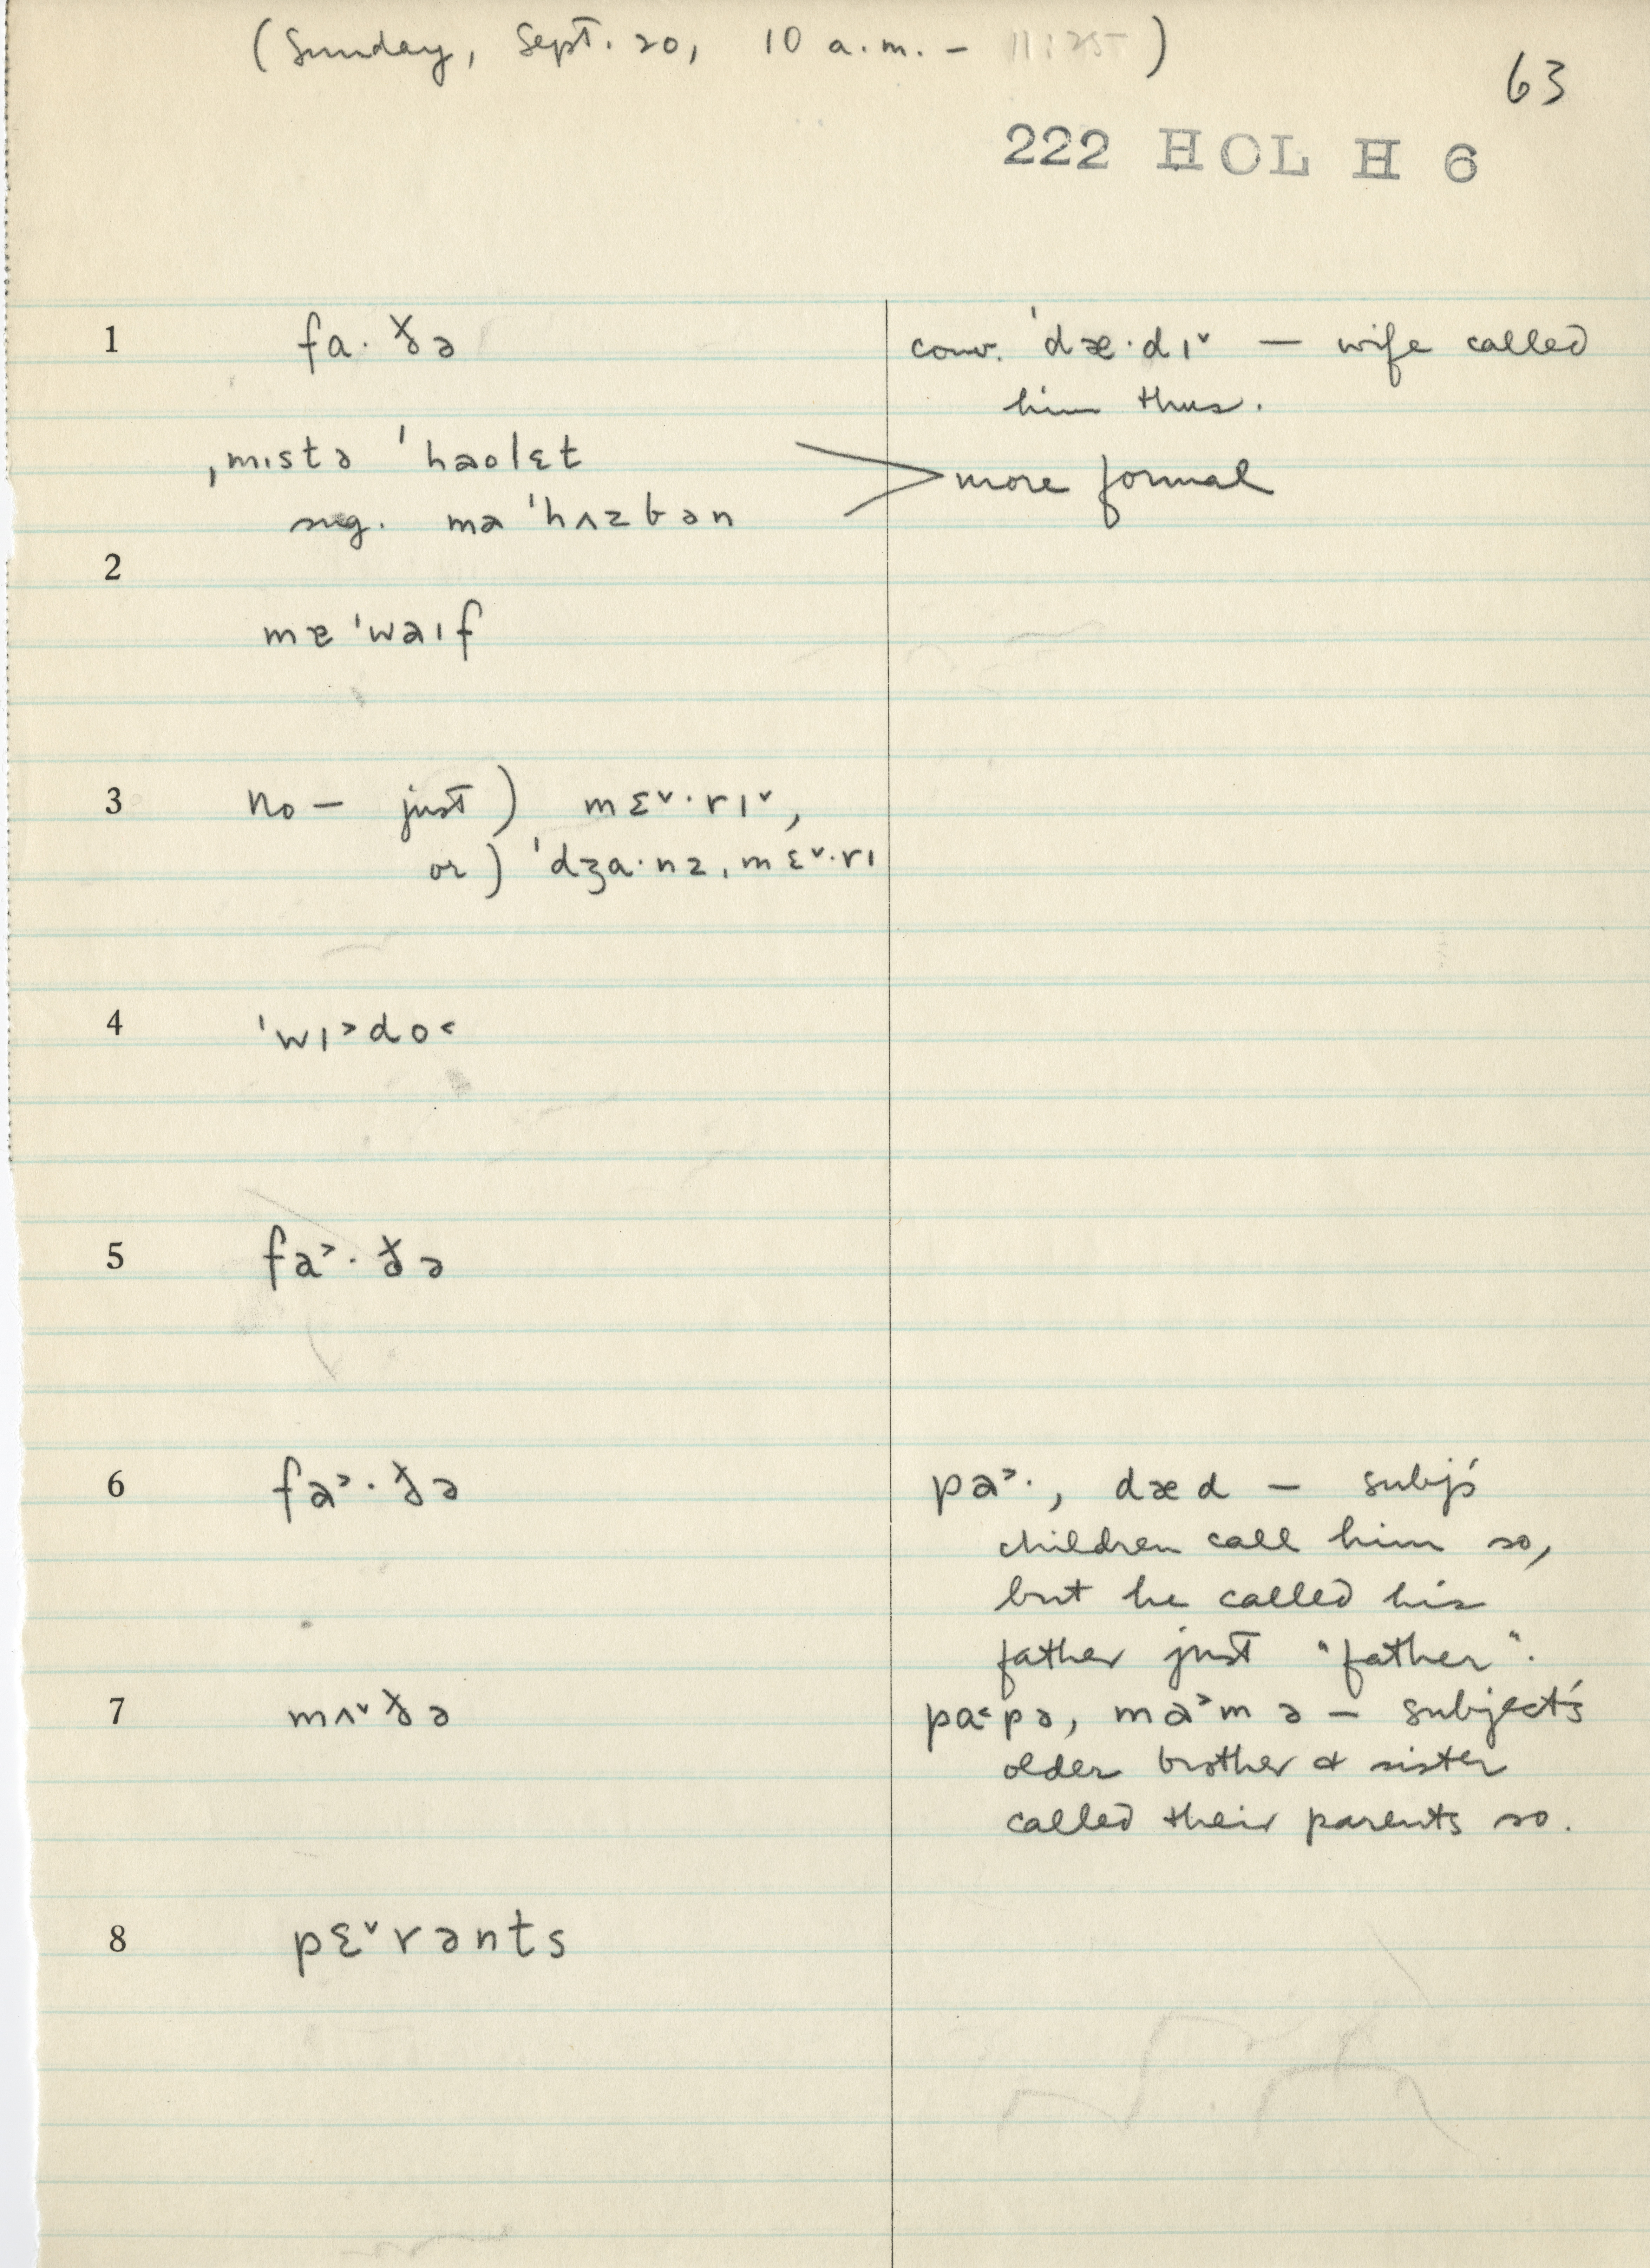 (Sunday, Sept. 20, 10 a.m. – 11:25)
63
222 HOL H 6
1 fa·ðə conv. ˈdæ·dɪ˅ — wife called
him thus.
ˌmɪstə ˈhaolɛt
more formal
sug. mə ˈhʌzbən
2
mɐ ˈwaɪf
3 No — just) mɛ˅·rɪ˅,
or) ˈdʒɑ·nz ˌmɛ˅·rɪ
4 ˈwɪ˃do˂
5 fa˃·ðə
6 fa˃·ðə pa˃·, dæd — subj's
children call him so,
but he called his
father just "father".
7 mʌ˅ðə pɑ˂pə, ma˃mə — subject's
older brother & sister
called their parents so.
8 pɛ˅rənts